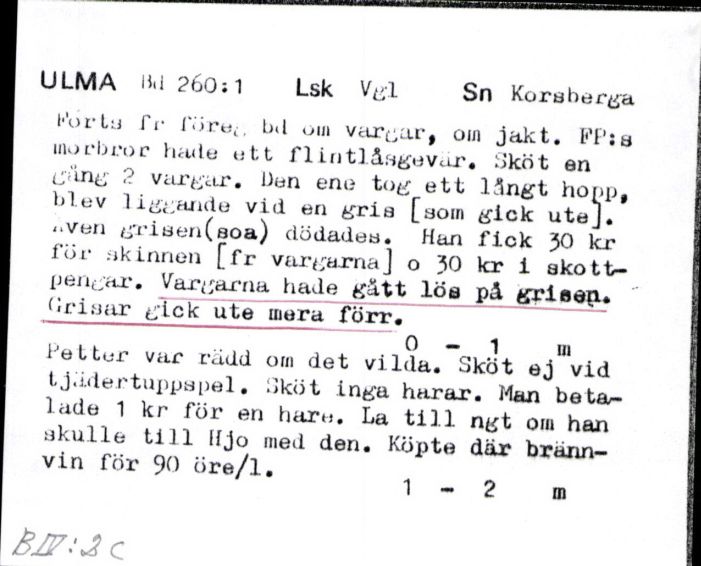 ULMA Bd 260:1 Lsk Vgl Sn Korsberga
Forts fr föreg. bd om vargar, om jakt. FP:s
morbror hade ett flintlåsgevär. Sköt en
gång 2 vargar. Den ene tog ett långt hopp,
blev liggande vid en gris [som gick ute].
även grisen(soa) dödades. Han fick 30 kr
för skinnen [fr vargarna] o 30 kr i skott-
pengar. Vargarna hade gått lös på grisen.
Grisar gick ute mera förr.
0 - 1 m
Petter var rädd om det vilda. Sköt ej vid
tjädertuppspel. Sköt inga harar. Man beta-
lade 1 kr för en hare. La till ngt om han
skulle till Hjo med den. Köpte där bränn-
vin för 90 öre/l.
1 - 2 m
B IV: 2 c